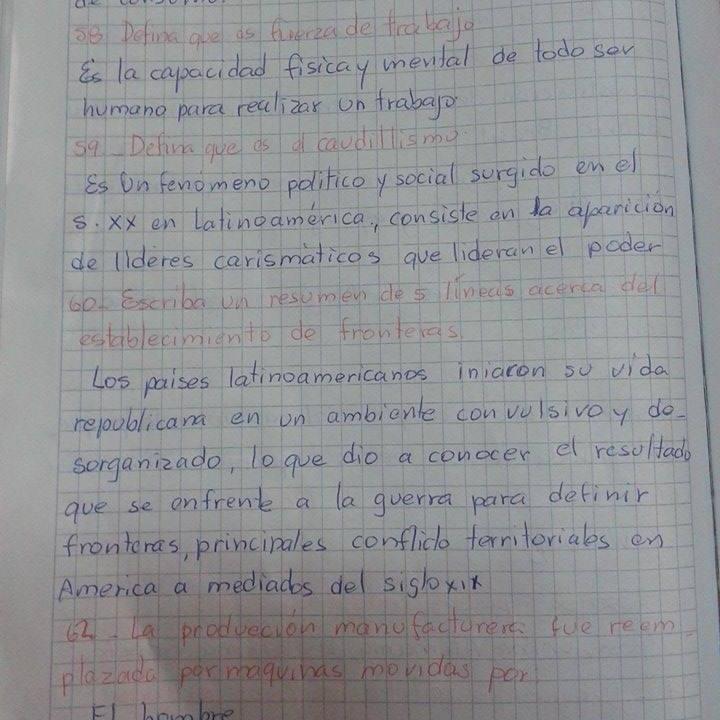 de consumo.
58 Defina que es fuerza de trabajo
Es la capacidad fisica y mental de todo ser
humano para realizar un trabajo
59 - Defina que es el caudillismo.
Es Un fenómeno politico y social surgido en el
s. xx en Latinoamérica, consiste en la aparición
de lideres carismàticos que lideran el poder
60- Escriba un resumen de 5 lineas acerca del
establecimiento de fronteras.
Los paises latinoamericanos iniaron su vida
republicana en un ambiente convulsivo y de-
sorganizado, lo que dio a conocer el resultado
que se enfrente a la guerra para definir
fronteras, principales conflicto territoriales en
America a mediados del siglo xix
62 - La producción manufacturera fue reem-
plazada por maquinas movidas por
El hombre